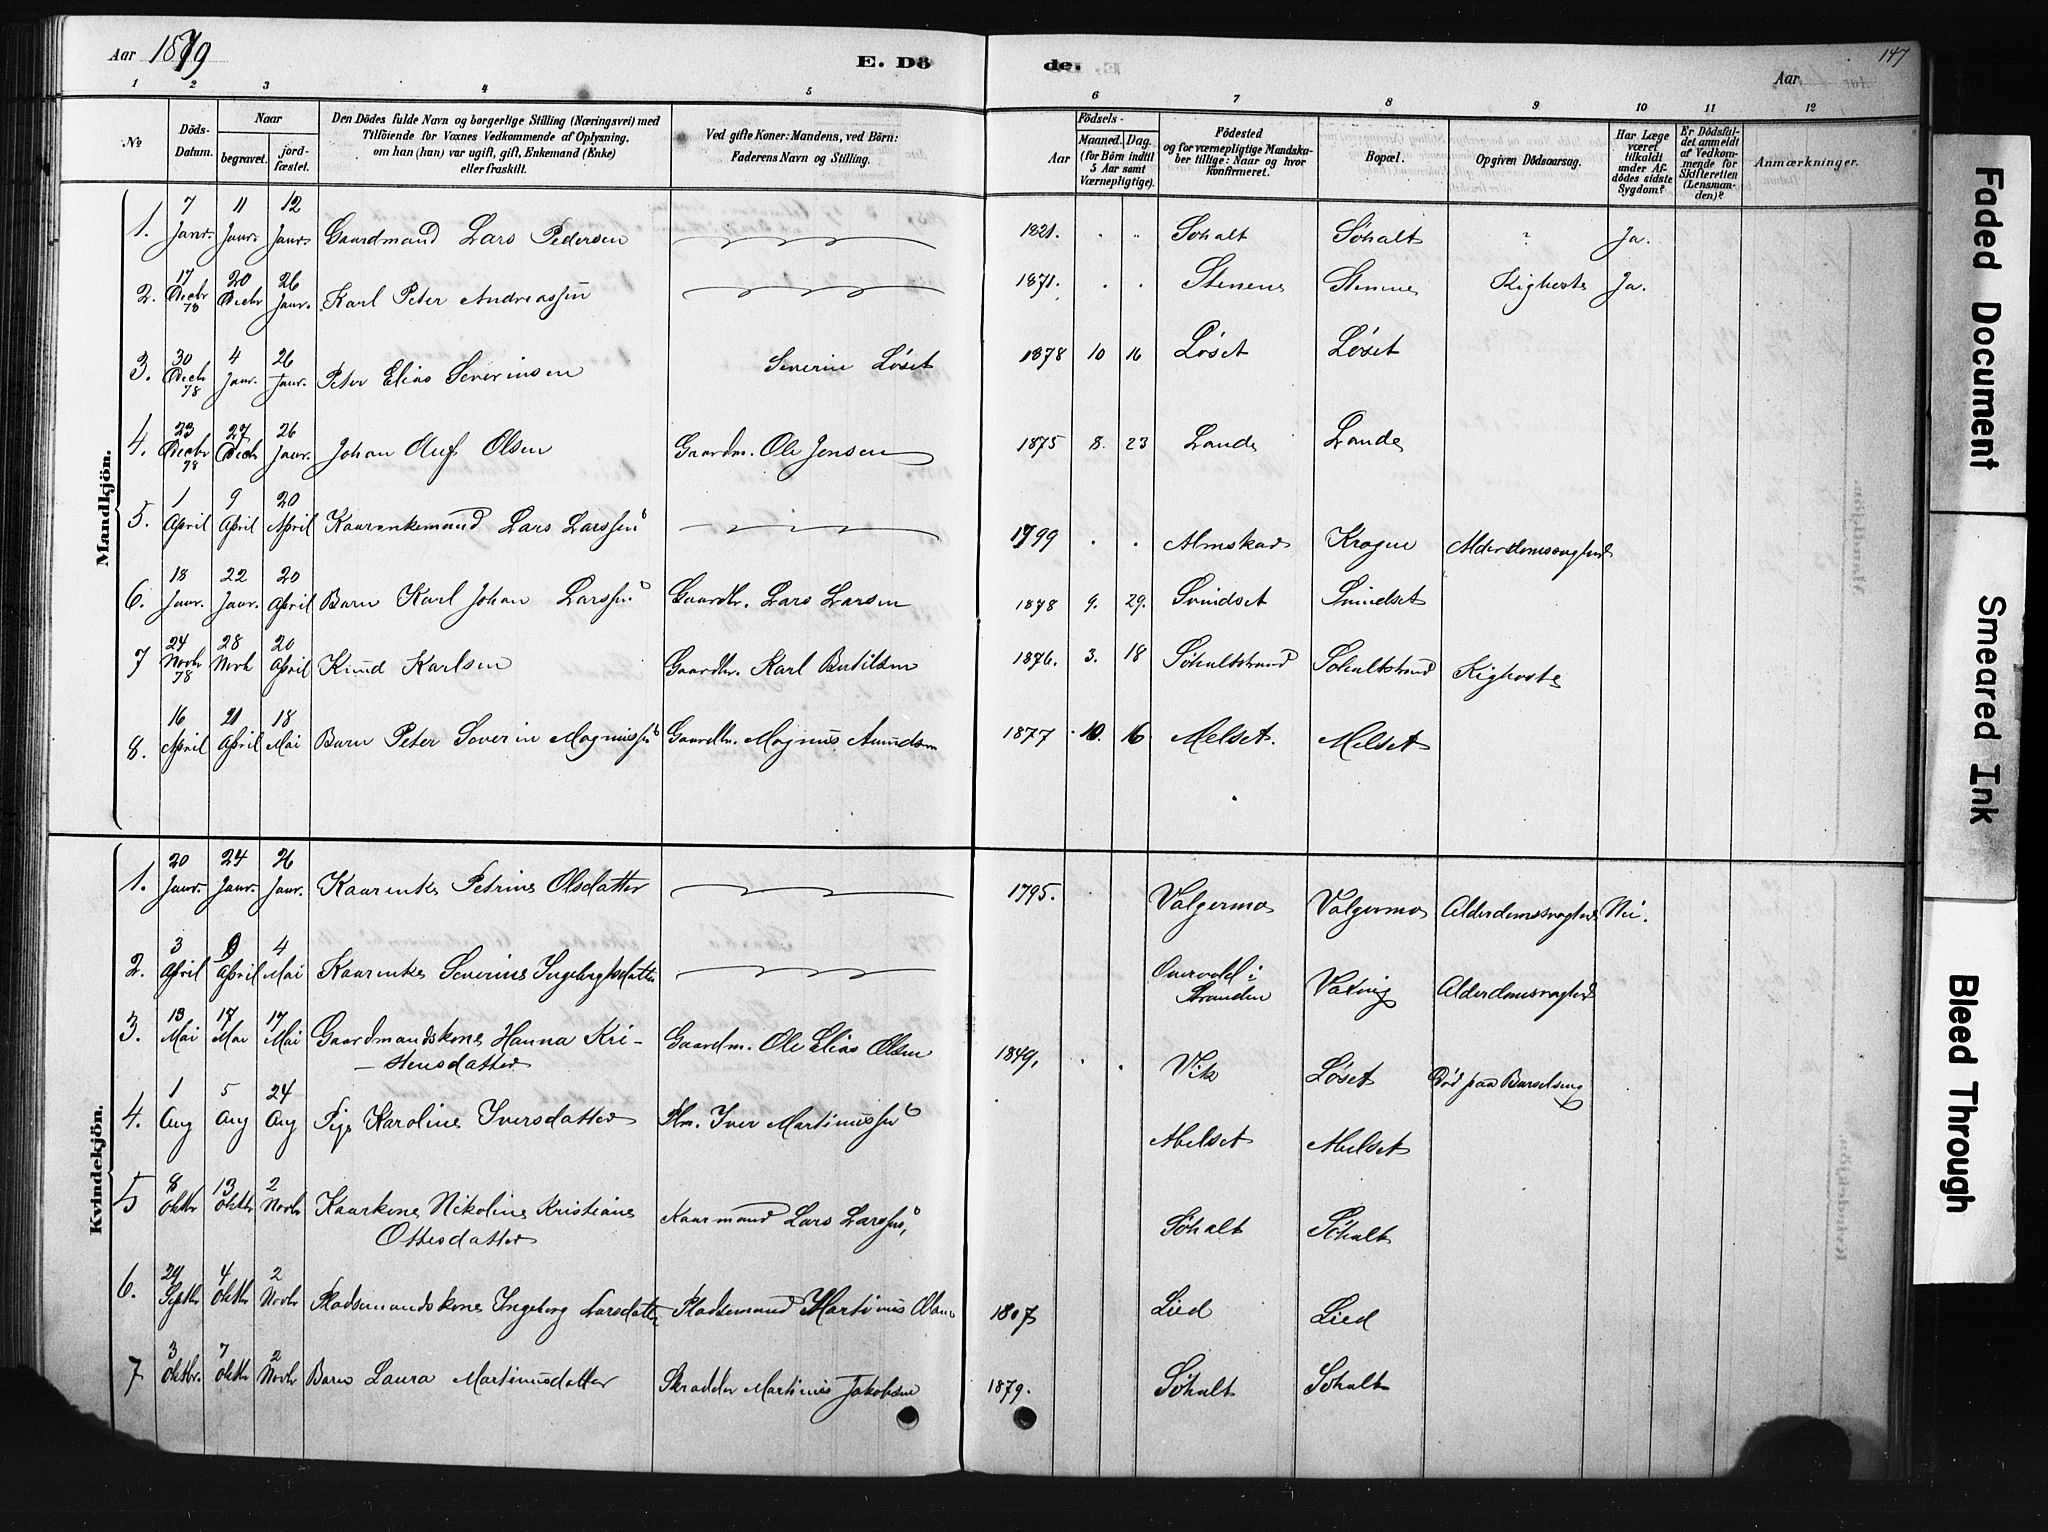 Aar 1879
E. Döde.
Aar
147
1 2 3 4 5 6 7 8 9 10 11 12
No
Döds-Datum.
Naar
begravet.
jordfæstet.
Den Dödes fulde Navn og borgerlige Stilling (Næringsvei) med
Tilföiende for Voxnes Vedkommende af Oplysning,
om han (hun) var ugift, gift, Enkemand (Enke)
eller fraskilt.
Ved gifte Koner: Mandens, ved Börn:
Faderens Navn og Stilling.
Födsels-
Aar
Maaned. Dag.
(for Börn indtil
5 Aar samt
Værnepligtige).
Födested
og for værnepligtige Mandskaber
tillige: Naar og hvor
konfirmeret.
Bopæl.
Opgiven Dödsaarsag.
Har Læge
været
tilkaldt
under Afdödes
sidste
Sygdom?
Er Dödsfaldet
anmeldt
af Vedkommende
for
Skifteretten
(Lensmanden)?
Anmærkninger.
Mandkjön.
1. 7 Janr. 11 Janr. 12 Janr. Gaardmand Lars Pedersen 1821. Søholt Søholt ? Ja.
2. 17 Decbr 78 20 Decbr 26 Janr. Karl Peter Andreassen 1871. Stenene Stenene Kighoste Ja.
3. 30 Decbr 78 4 Janr. 26 Janr. Peter Elias Severinsen Severin Løset 1878 10 16 Løset Løset
4. 23 Decbr 78 27 Decbr 26 Janr. Johan Oluf Olsen Gaardm. Ole Jensen 1875 8. 23 Lande Lande
5. 1 April 9 April 20 April Kaarenkemand Lars Larssen 1799 Almskaar Alderdomssvaghed
6. 18 Janr. 22 Janr. 20 April Barn Karl Johan Larssen Gaardbr. Lars Larsen 1878 9. 29. Svindset Svindset
7 24 Novbr 78 28 Novb 20 April Knud Karlsen Gaardbr. Karl 1876. 3. 18 Søholtstrand Søholtstrand Kighoste
8. 16 April 21 April 18 Mai Barn Peter Severin Magnussen Gaardbr. Magnus Amundsen 1877 10. 16. Melset. Melset
Kvindekjön.
1. 20 Janr. 24 Janr. 26 Janr. Kaarenke Petrine Olsdatter 1795. Valgermo Valgermo Alderdomssvaghed Nei.
2. 3 April 9 April 4 Mai Kaarenke Severine Ingebrigtsdatter Overvold i Stranden Alderdomssvaghed
3. 13 Mai 17 Mai 17 Mai Gaardmandskone Hanna Kri-
stensdatter Gaardm. Ole Elias Olsen 1849. Vik Løset Död paa Barselseng
4. 1 Aug 5 Aug 24 Aug Pige Karoline Iversdatter Plm. Iver Martinussen Abelset Abelset
5 8 Oktbr 13 Oktbr 2 Novbr Kaarkone Nikoline Kristiane
Ottesdatter Kaarmand Lars Larssen, Søholt Søholt
6. 29 Septbr 4 Oktbr 2 Novbr Pladsemandskone Ingeborg Larsdatter Pladsemand Martinus Olsen 1807 Lied Lied
7 3 Oktbr. 7 Oktbr 2 Novbr Barn Laura Martinusdatter Skradder Martinus Jakobsen 1879. Søholt Søholt
Faded Document
Smeared Ink
Bleed Through